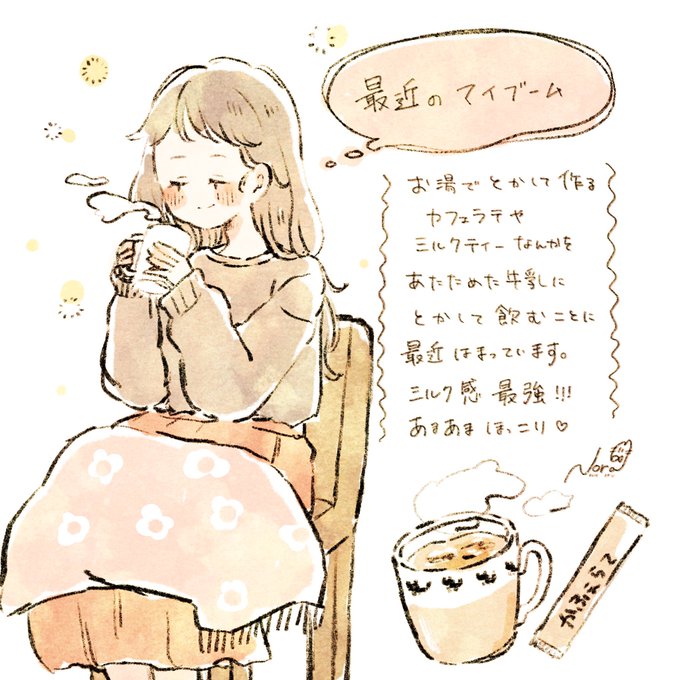 最近のマイブーム
お湯でとかして作る
カフェラテや
ミルクティーなんかを
あたためた牛乳に
とかして飲むことに
最近はまっています。
ミルク感最強!!!
あまあまほっこり♡
Nora
かふぇらて